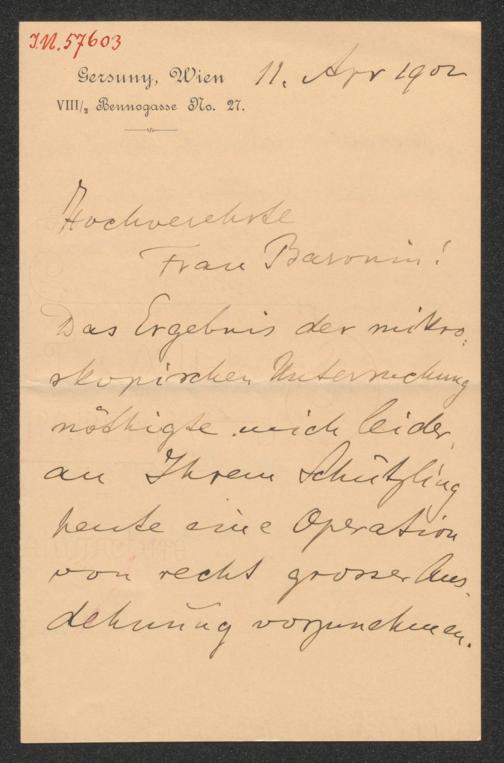 I.N. 57603
Gersuny, Wien
VIII/2 Bennogasse No. 27.
11. Apr 1902
Hochverehrte
Frau Baronin!
Das Ergebnis der mikro-
skopischen Untersuchung
nöthigte mich leider,
an Ihrem Schützling
heute eine Operation
von recht grosser Aus-
dehnung vorzunehmen.